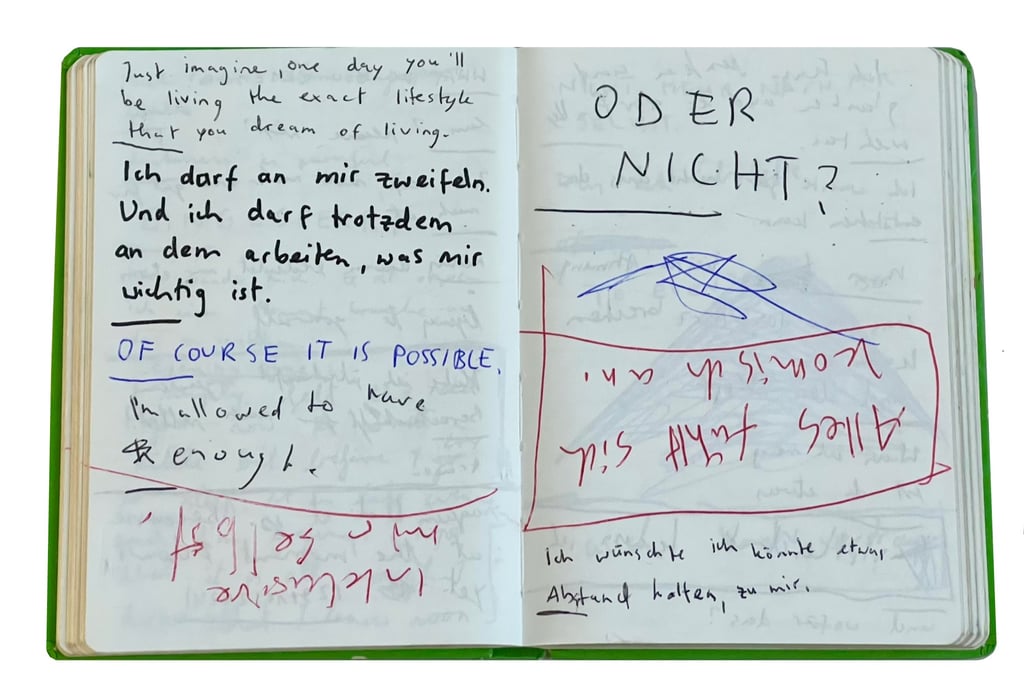 Just imagine, one day you'll
be living the exact lifestyle
that you dream of living.
Ich darf an mir zweifeln.
Und ich darf trotzdem
an dem arbeiten, was mir
wichtig ist.
OF COURSE IT IS POSSIBLE.
I'm allowed to have
enough.
Inklusive
mir selbst.
ODER
NICHT?
Alles fühlt sich
komisch an.
Ich wünschte ich könnte etwas
Abstand halten, zu mir.